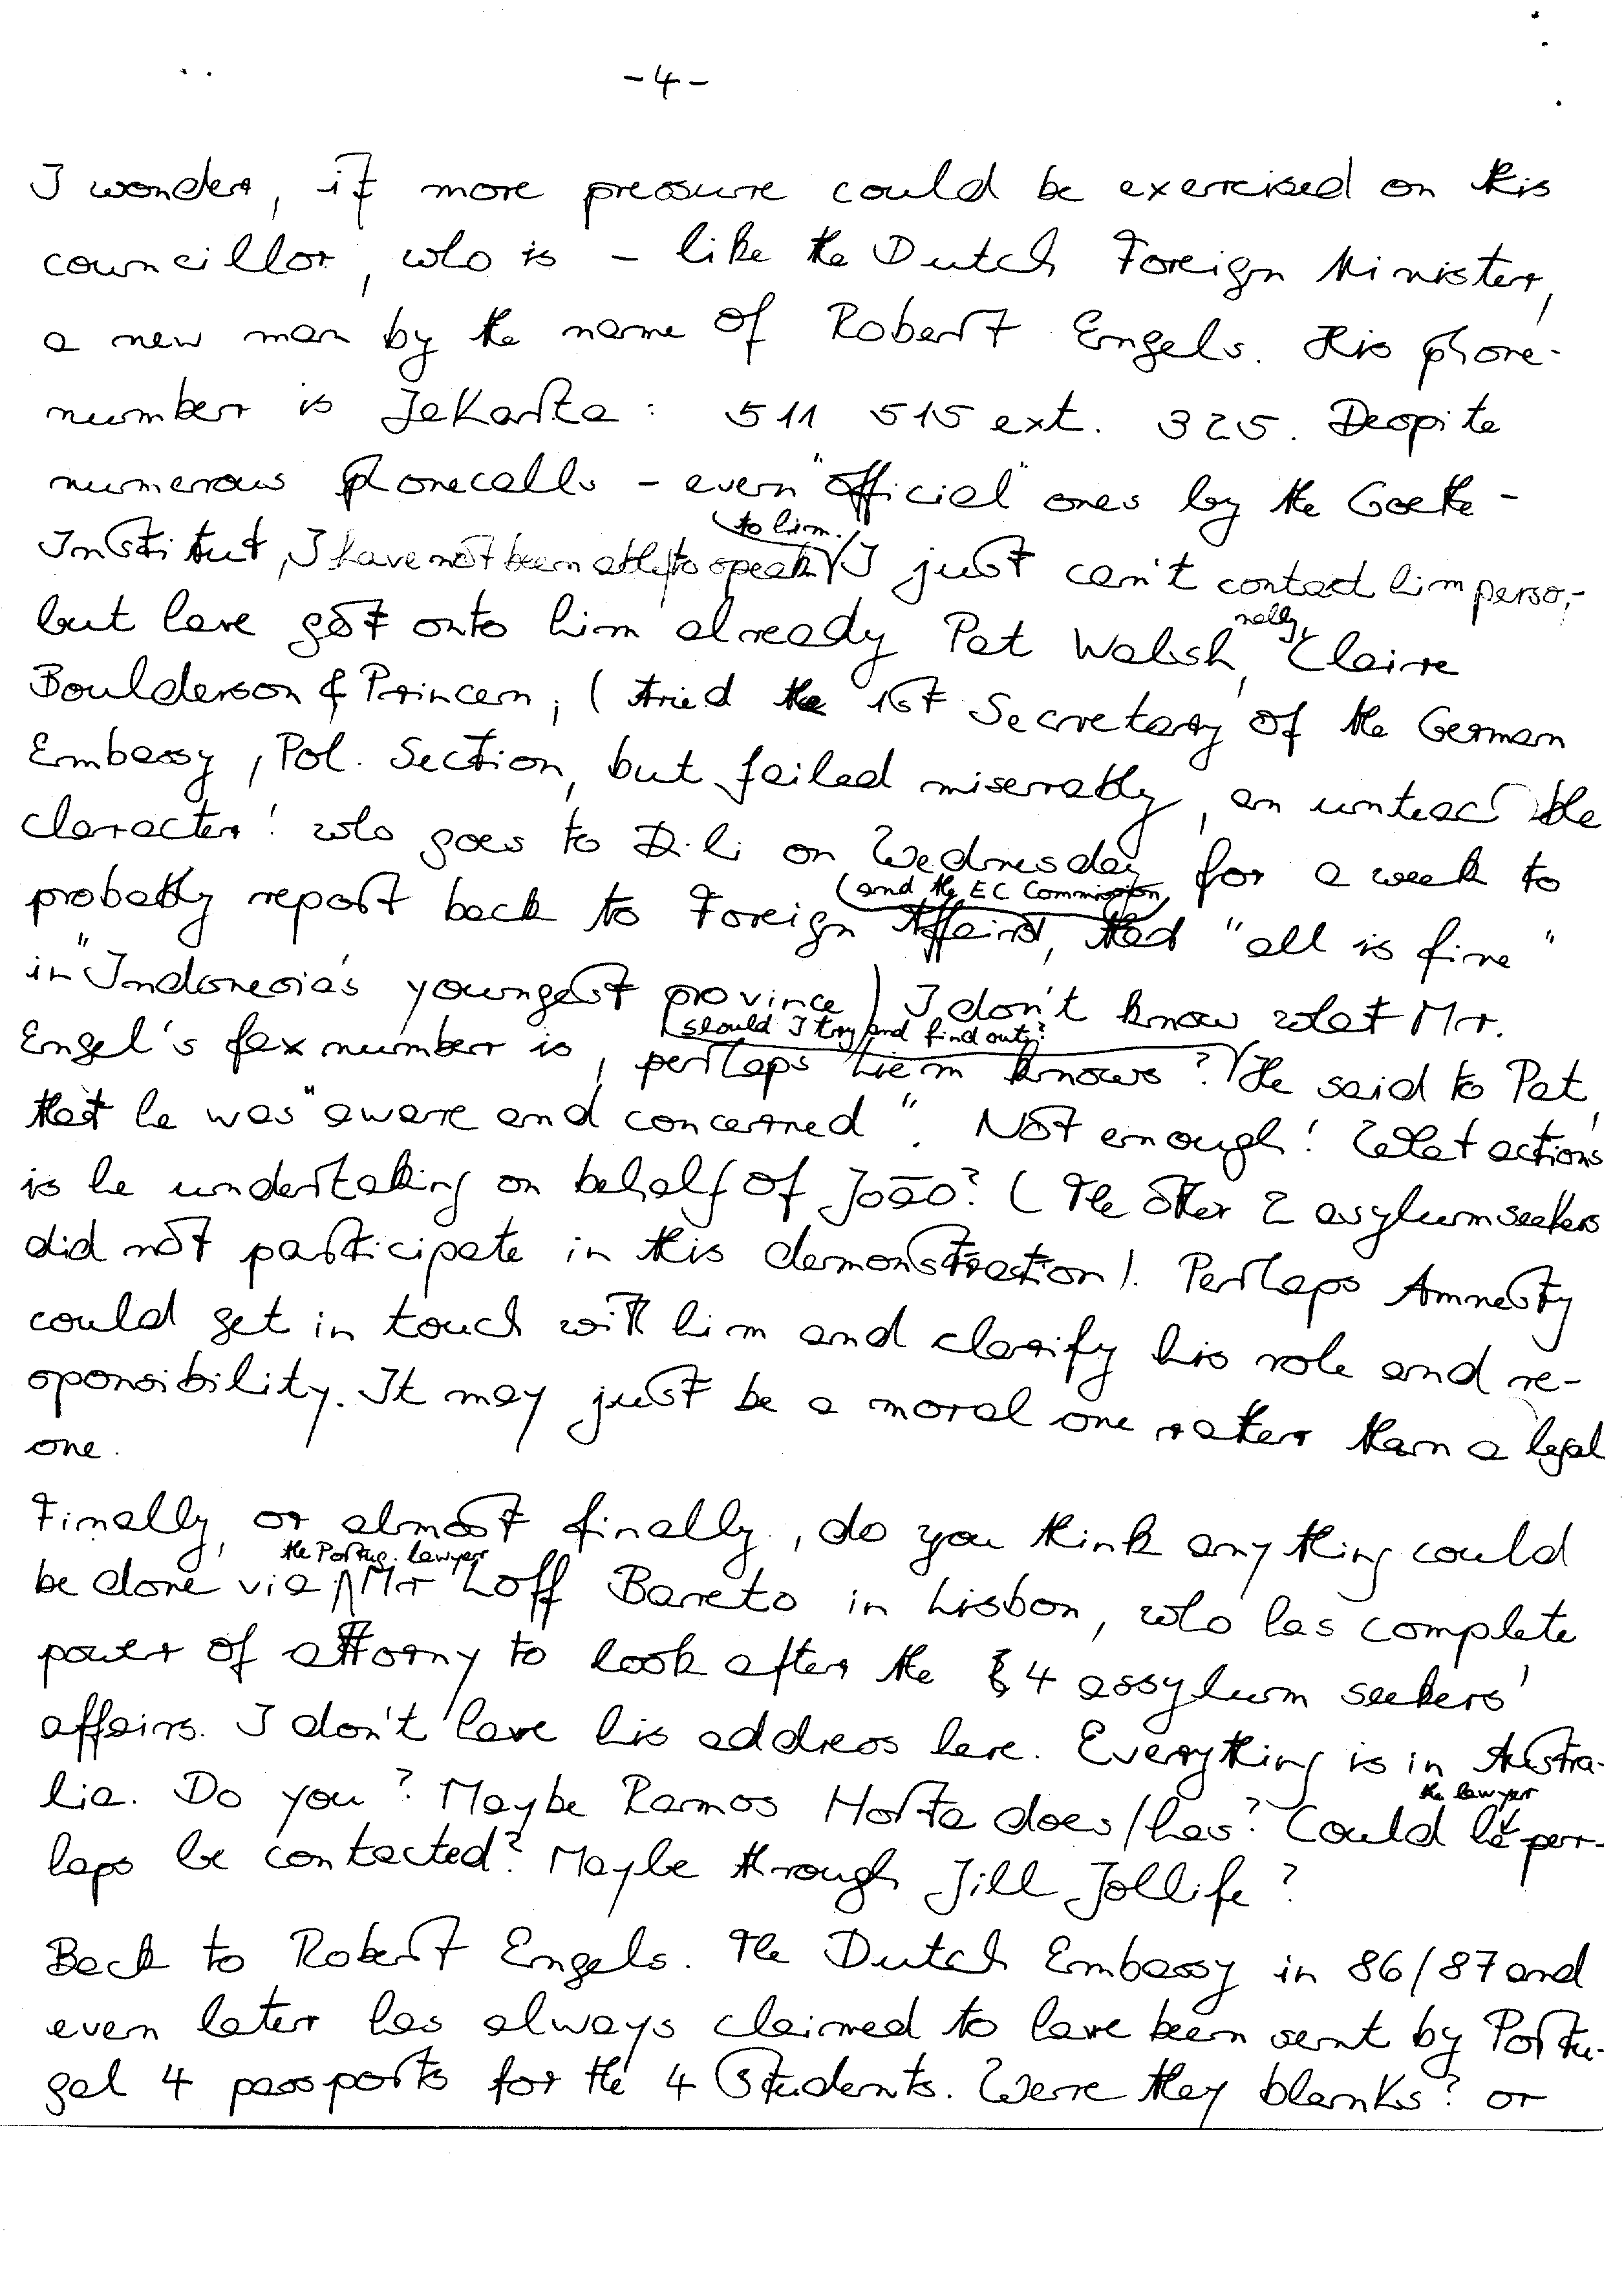 -4-
I wonder, if more pressure could be exercised on this
councillor, who is - like the Dutch Foreign Minister,
a new man by the name of Robert Engels. His phone-
number is Jakarta: 511 515 ext. 325. Despite
numerous phonecalls - even "official" ones by the Goethe-
to him.
Institut, I have not been able to speak I just can't contact him perso-
nally,
but have got onto him already Pat Walsh, Claire
Boulderson & Princen; (tried the 1st Secretary of the German
Embassy, Pol. Section, but failed miserrably, an unteachable
character! who goes to Dili on Wednesday for a week to
(and the EC Commission,
probably report back to Foreign Affairs, that "all is fine"
in "Indonesia's youngest province) I don't know what Mr.
(should I try and find out?
Engel's fax number is, perhaps Liem knows? He said to Pat,
that he was "aware and concerned". Not enough! What actions
is he undertaking on behalf of João? (The other 2 asylumseekers
did not participate in this demonstration). Perhaps Amnesty
could get in touch with him and clarify his role and re-
sponsibility. It may just be a moral one rather than a legal
one.
Finally, or almost finally, do you think anything could
the Portug. lawyer
be done via Mr Loff Bareto in Lisbon, who has complete
power of attorny to look after the 4 assylum seekers'
affairs. I don't have his address here. Everything is in Austra-
the lawyer
lia. Do you? Maybe Ramos Horta does/has? Could he per-
haps be contacted? Maybe through Jill Jollife?
Back to Robert Engels. The Dutch Embassy in 86/87 and
even later has always claimed to have been sent by Portu-
gal 4 passports for the 4 Students. Were they blanks? or